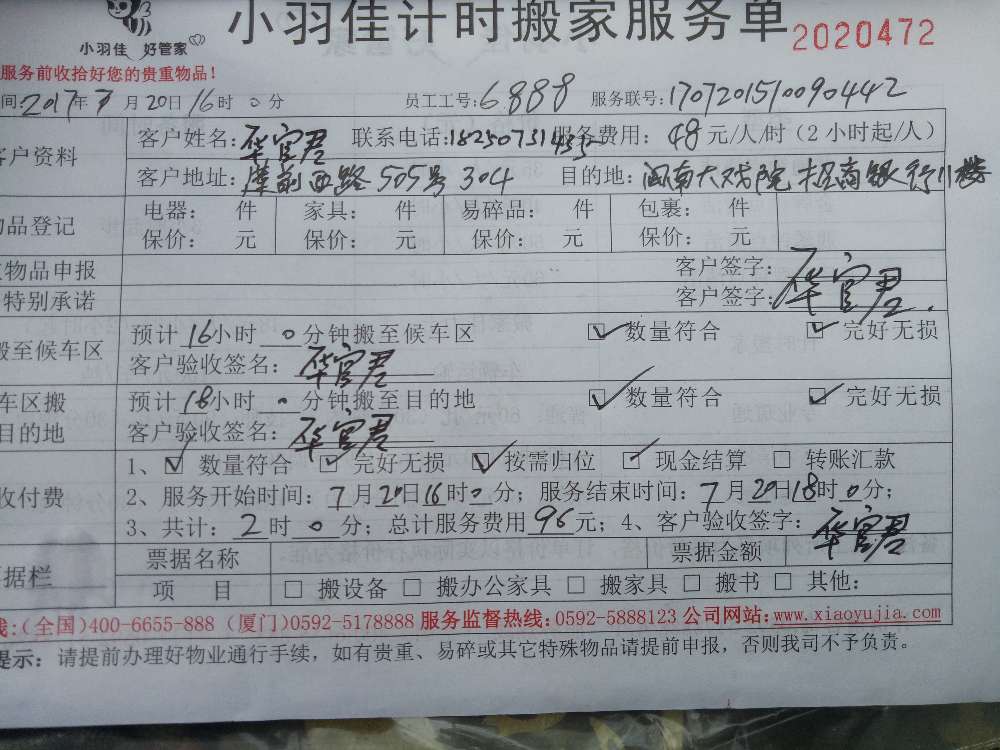 小羽佳 好管家
小羽佳计时搬家服务单 2020472
服务前收拾好您的贵重物品!
间:2017年7月20日16时0分 员工工号:6888 服务联号:1707201510090442
客户资料 客户姓名:华官君 联系电话:18250731435 服务费用: 48元/人/时(2小时起/人)
客户地址: 前西路505号304 目的地: 闽南大戏院 招商银行川楼
品登记 电器: 件 家具: 件 易碎品: 件 包裹: 件
保价: 元 保价: 元 保价: 元 保价: 元
物品申报 客户签字: 华官君
特别承诺 客户签字:
搬至候车区 预计16小时0分钟搬至候车区 ☑数量符合 ☑完好无损
客户验收签名: 华官君
车区搬 预计18小时0分钟搬至目的地 ☑数量符合 ☑完好无损
目的地 客户验收签名: 华官君
1、☑ 数量符合 ☑ 完好无损 ☑按需归位 ☑ 现金结算 □ 转账汇款
收付费 2、服务开始时间: 7月20日16时0分; 服务结束时间: 7月20日18时0分;
3、共计: 2时0分; 总计服务费用96元; 4、客户验收签字: 华官君
据栏 票据名称 票据金额
项 目 □ 搬设备 □ 搬办公家具 □ 搬家具 □ 搬书 □ 其他:
线:(全国)400-6655-888 (厦门)0592-5178888 服务监督热线:0592-5888123 公司网站:www.xiaoyujia.com
提示: 请提前办理好物业通行手续, 如有贵重、易碎或其它特殊物品请提前申报, 否则我司不予负责。